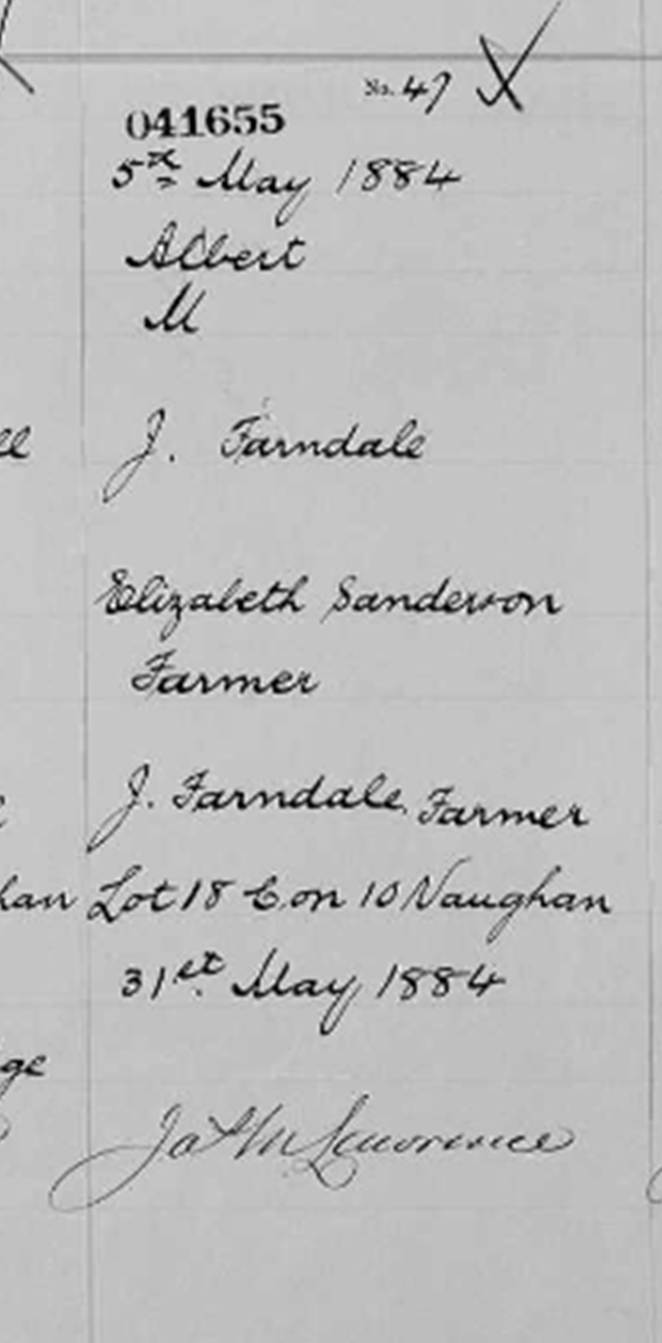 No. 47
041655
5th May 1884
Albert
M
ll J. Farndale
Elizabeth Sanderson
Farmer
J. Farndale, Farmer
han Lot 18 Con 10 Vaughan
31st May 1884
ge
Lawrence